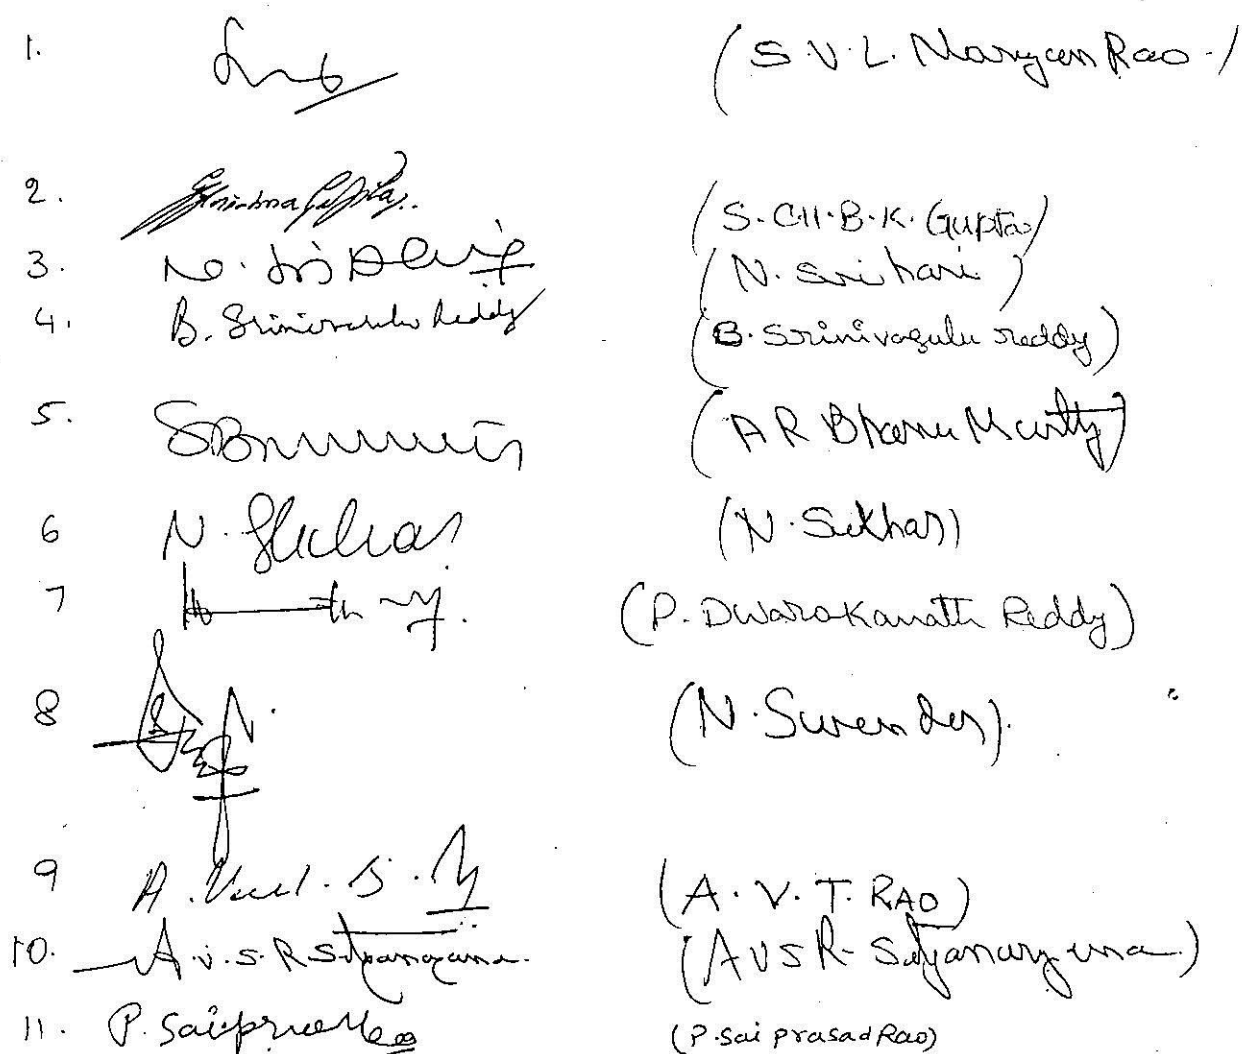 1. (S.V.L. Narayan Rao.)
2. (S.CH.B.K. Gupta)
3. (N. Srihari)
4. B. Srinivasulu Reddy (B. Srinivasulu reddy)
5. (A R Bhanu Murthy)
6 N. Sekhar (N. Sekhar)
7 (P. Dwarakanath Reddy)
8 (N. Surender).
9 (A. V. T. RAO)
10. A.V.S.R Satyanarayana. (A V S R. Satyanarayana)
11. (P. Sai prasad Rao)